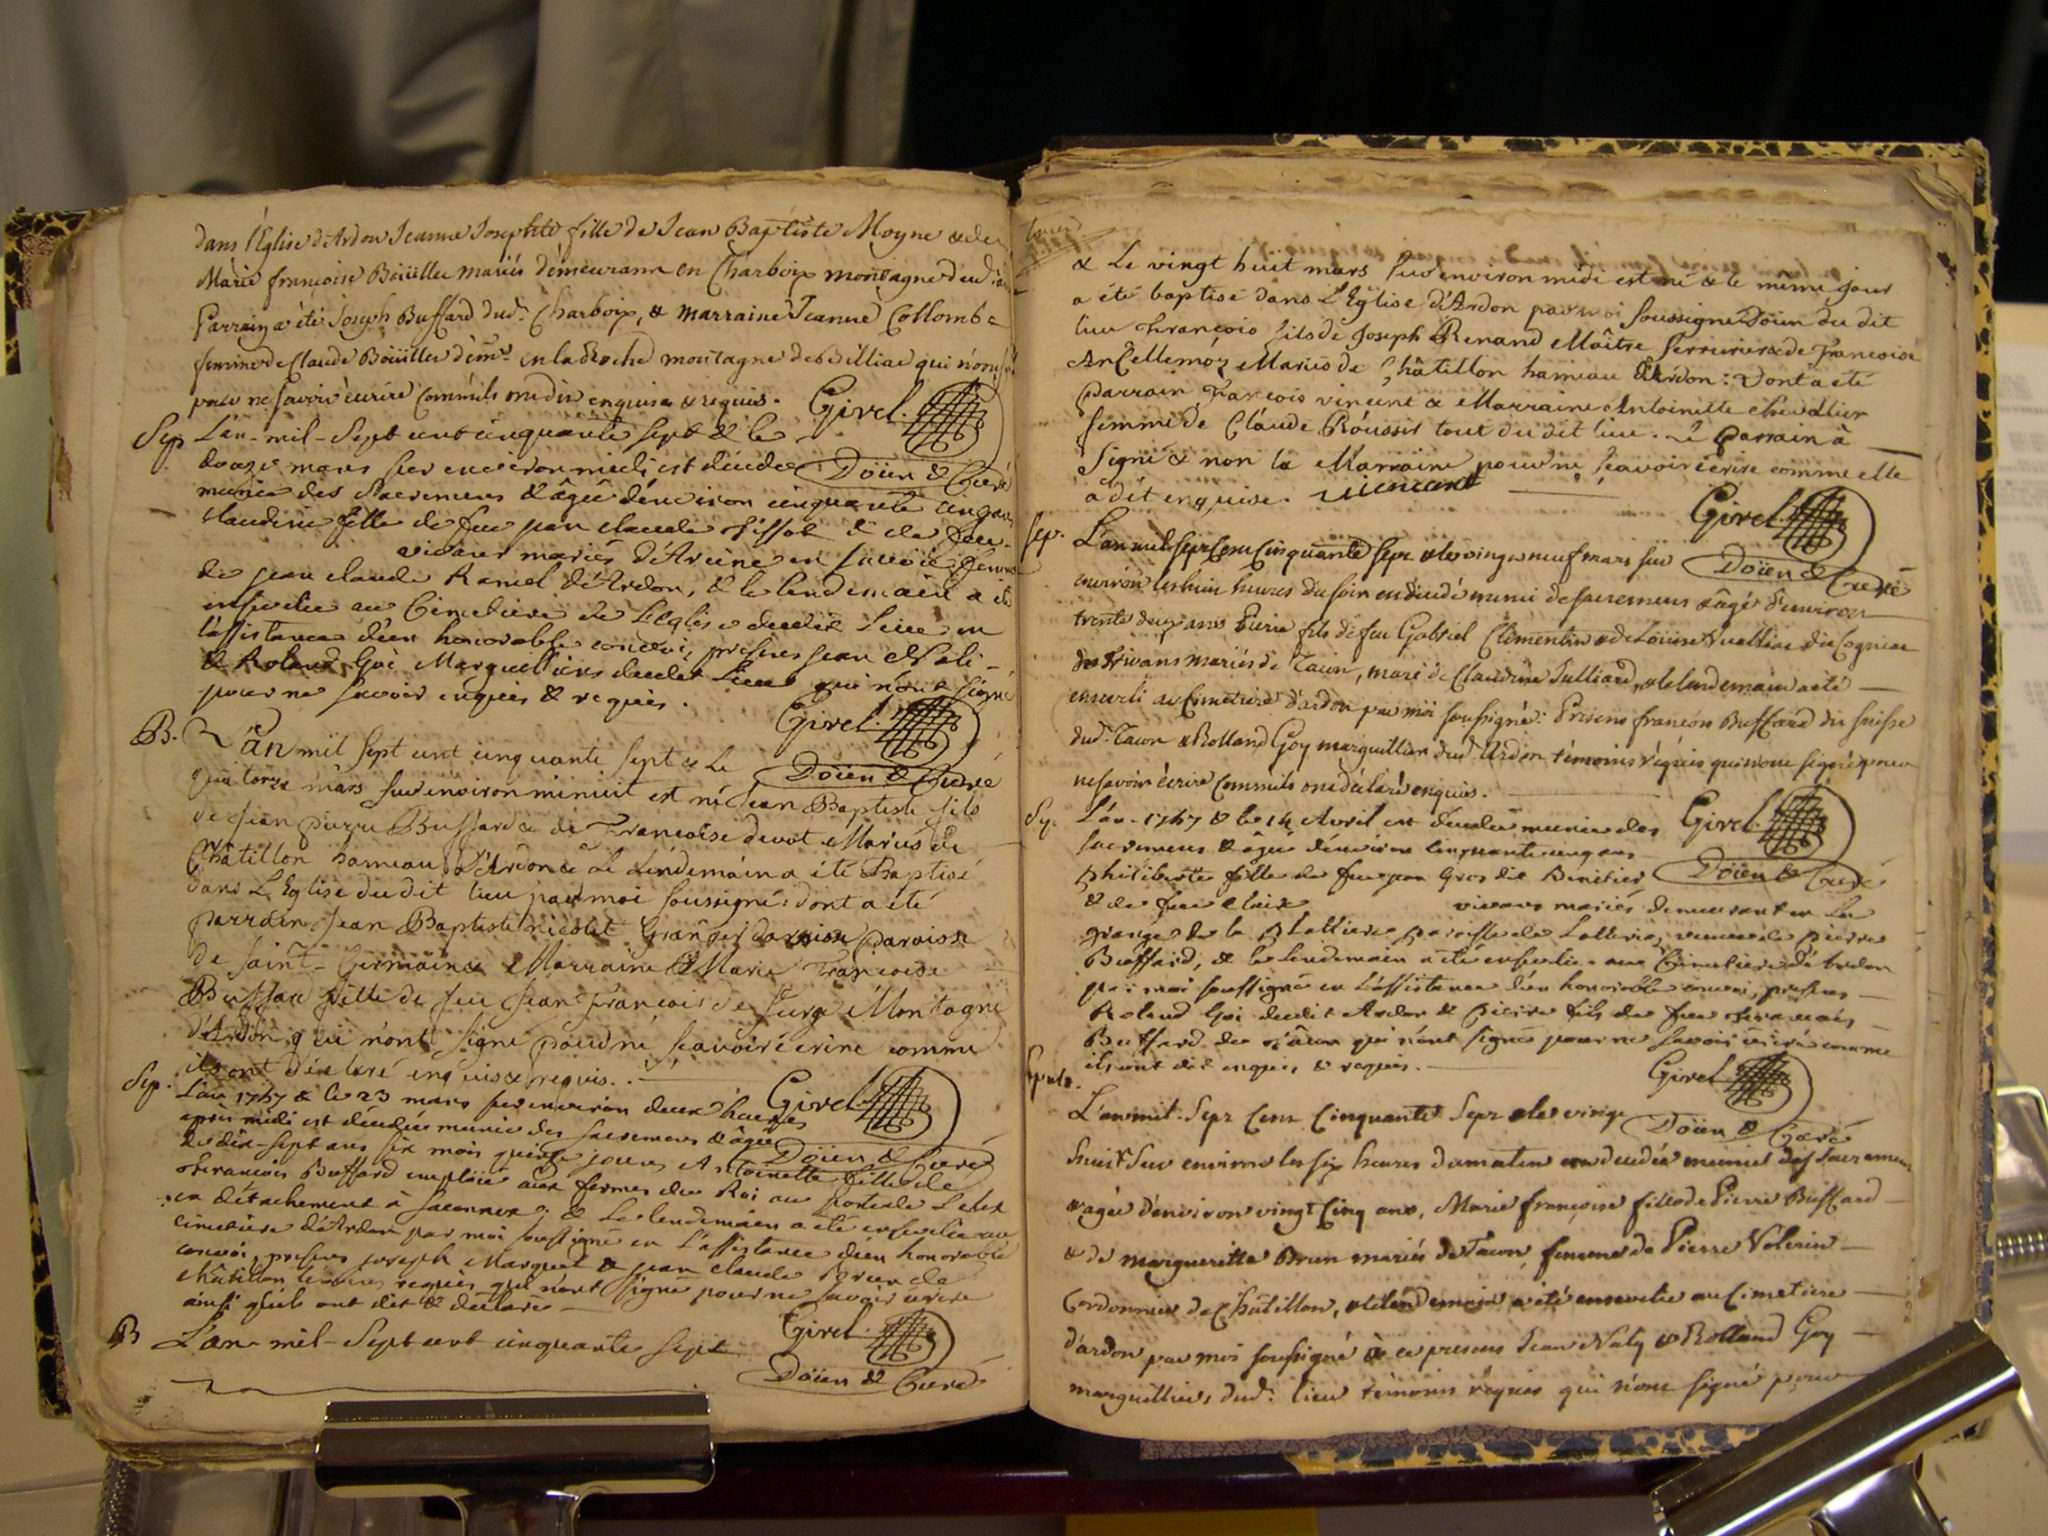 dans l'Eglise d'Ardon Jeanne Josephte fille de Jean Baptiste Moyne & de
Marie françoise Boüiller mariés demeurann en Charboix montagne dud.
Parrain a été Joseph Buffard dud. Charboix, & marraine Jeanne Collombe
femme de Claude Boüiller dem.t en la Roche montagne de Billiac qui n'ont
pour ne savoir écrire comm'ils ont dit enquis & requis. Givel
Sep L'an-mil-Sept cent cinquante sept & le
douze mars sur environ midi est décédée Doïen & Curé
munie des Sacremens & âgée d'environ cinquante cinq ans
claudine fille de feu jean claude & de feue
vivans mariés d'Arcine en Savoie, femme
de jean claude Ramel d'Ardon, & le lendemain a été
ensevelie au Cimetiere de l'Eglise dudit lieu en
l'assistance d'un honorable convoi, présens jean Nali-
& Roland Goi Marguilliers dudit lieu qui n'ont signé
pour ne savoir enquis & requis. Givel
B. L'an mil sept cent cinquante sept & le Doïen & Curé
quatorze mars sur environ minuit est né Jean Baptiste fils
de Jean pierre Buffard & de Françoise devot Mariés de
Châtillon hameau d'Ardon & Le Lendemain a été Baptisé
dans L'Eglise du dit lieu par moi soussigné: dont a été
parrain Jean Baptiste nicolet paroisse
de saint-Germain & Marraine Marie Françoise
Buffard fille de feu Jean François de Montagne
d'Ardon qui n'ont signé pour ne sçavoir écrire comme
ils ont déclaré enquis & requis.
Sep. L'an 1757 & le 23 mars sur environ deux heures Givel
après midi est décédée munie des sacremens & âgée
de dix-sept ans six mois quinze jours Antoinette fille de Doïen & Curé
François Buffard emploié aux fermes du Roi au poste de Lelex
en détachement à Saconnex; & le lendemain a été ensevelie au
cimetiere d'Ardon par moi soussigné en l'assistance d'un honorable
convoi, présens joseph Marquet & jean claude de
Châtillon témoins requis qui n'ont signé pour ne savoir écrire
ainsi qu'ils ont dit & déclaré Givel
B L'an-mil-Sept cent cinquante sept
Doïen & Curé
& Le vingt huit mars sur environ midi est né & le même jour
a été baptisé dans L'Eglise d'Ardon par moi soussigné Doïen du dit
lieu François fils de Joseph Renand Maître serrurier & de Françoise
Ancellemoz Mariés de Châtillon hameau d'Ardon: Dont a été
parrain François vincent & Marraine Antoinette chevallier
femme de Claude Roussit tout du dit lieu. Le parrain à
signé & non la Marraine pour ne sçavoir écrire comme elle
à dit enquise. vincent Givel
Sep. L'an mil Sept Cent Cinquante Sept & le vingt neuf mars sur Doïen & Curé
environ les huit heures du soir est décédé muni de sacremens & âgé d'environ
trente deux ans Pierre fils de feu Gabriel Clementin & de Louise Vuilliac dit Cagniac
vivans mariés de Tacon, mari de Claudine Julliard, & le lendemain a été
enseveli au Cimetiere d'ardon par moi soussigné: Présens françois Buffard dit suisse
dud. Tacon & Rolland Goy marguillier dud. Ardon témoins réquis qui n'ont signé pour
ne savoir écrire Comm'ils ont déclaré enquis.
Sep. L'an-1757 & le 14 Avril est décédée munie des Givel
sacremens & âgée d'environ cinquante cinq ans
philiberte fille de feu jean Gros dit Benitier Doïen & Curé
& de feue Claix vivans mariés demeurant en la
grange de la paroisse de, veuve de pierre
Buffard, & le lendemain a été ensevelie au Cimetiere d'Ardon
par moi soussigné en l'assistance d'un honorable convoi, présens
Roland Goi dudit Ardon & Pierre fils de feu François
Buffard de qui n'ont signé pour ne savoir écrire comme
ils ont dit enquis & requis. Givel
L'an mil: Sept Cent Cinquante Sept & le vingt Doïen & Curé
huit Sur environ les six heures du matin est décédée munie des Sacremens
& agée d'environ vingt Cinq ans, Marie françoise fille de Pierre Buffard
& de margueritte Brun mariés de Tacon, femme de Pierre Volerin
Cordonnier de Châtillon, & le lendemain a été ensevelie au Cimetiere
d'ardon par moi soussigné à ce presens Jean Naly & Rolland Goy
marguilliers dud: lieu témoins réquis qui n'ont signé pour